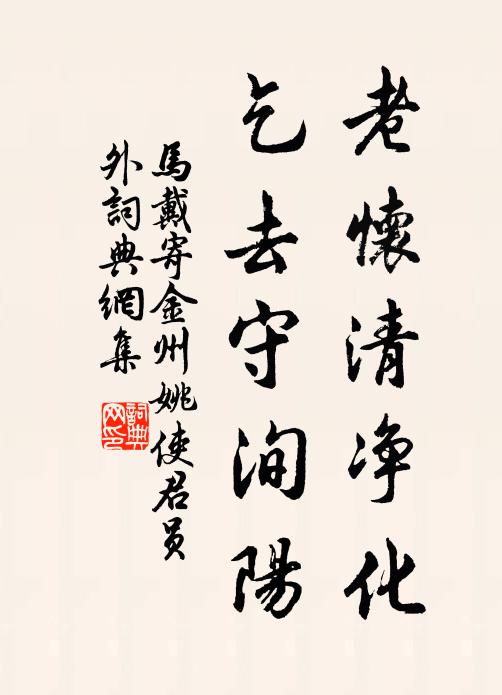 老懷清净化
乞去守洵陽
馬戴寄金州姚使君员
外詞典網集
詞典
网印